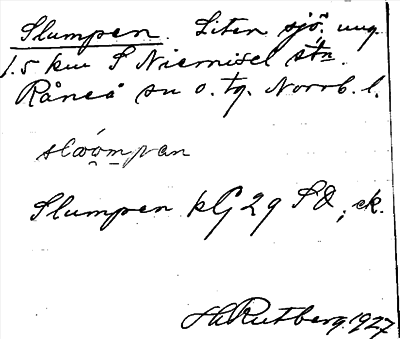 Slumpen. Liten sjö. ung.
1.5 km S Niemisel stn.
Råneå sn o. tg. Norrb. l.
Slumpen kG 29 SO, ek.
H Rutberg. 1927